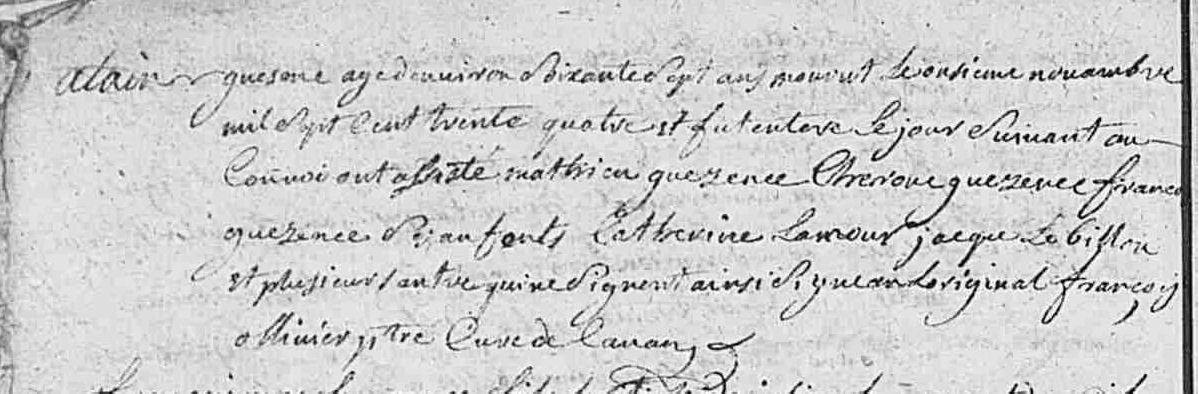 alain guesene age denviron Soixante Sept ans mourut Le onsieme nouambre
mil Sept Cent trente quatre et fut entere Le jour Suivant au
Convoi ont assisté mathieu guezenec guezenec franco
guezenec Ses enfents Catherine Lamour jacque Le billon
et plusieurs autre qui ne Signent ainsi Signe au Loriginal françoy
ollivier ptre Cure de Cavan